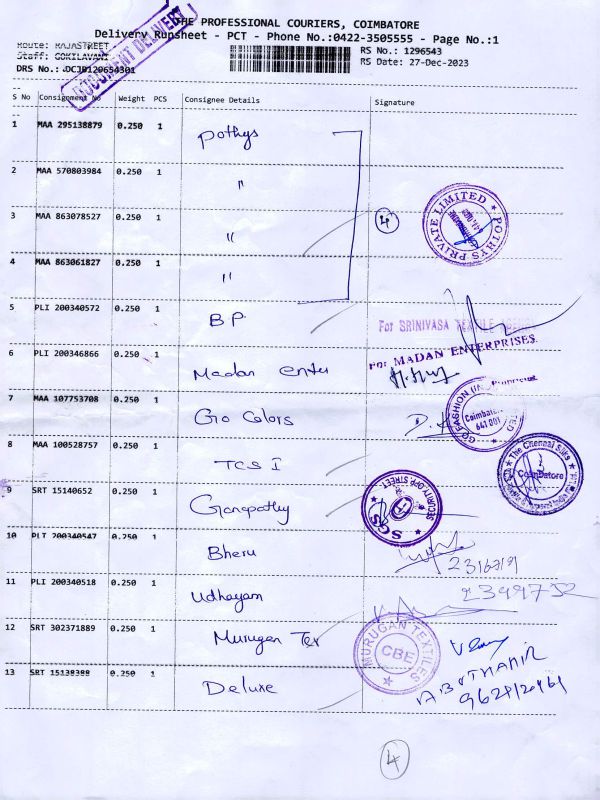 THE PROFESSIONAL COURIERS, COIMBATORE
Delivery Runsheet - PCT - Phone No.:0422-3505555 - Page No.:1
Route: RAJASTREET
RS No.: 1296543
Staff: GOKILAVANI
RS Date: 27-Dec-2023
DRS No.: DCJB120654301
DOCUMENT DELIVERY
S No Consignment No Weight PCS Consignee Details Signature
1 MAA 295138879 0.250 1 Pothys
2 MAA 570803984 0.250 1 "
3 MAA 863078527 0.250 1 " 4
POTHYS PRIVATE LIMITED
4 MAA 863061827 0.250 1 "
5 PLI 200340572 0.250 1 BP
For SRINIVASA TEXTILE
6 PLI 200346866 0.250 1 Madan enter
For MADAN ENTERPRISES
7 MAA 107753708 0.250 1 Go Colors
GO FASHION (IND Coimbatore 641 001
8 MAA 100528757 0.250 1 TCS I
The Chennai Silks Coimbatore
9 SRT 15140652 0.250 1 Ganapathy
SGS SECURITY OPP STREET
10 PLI 200340547 0.250 1 Bheru
11 PLI 200340518 0.250 1 Udhayam
12 SRT 302371889 0.250 1 Murugan Tex
MURUGAN TEXTILES CBE
13 SRT 15138388 0.250 1 Deluxe
4